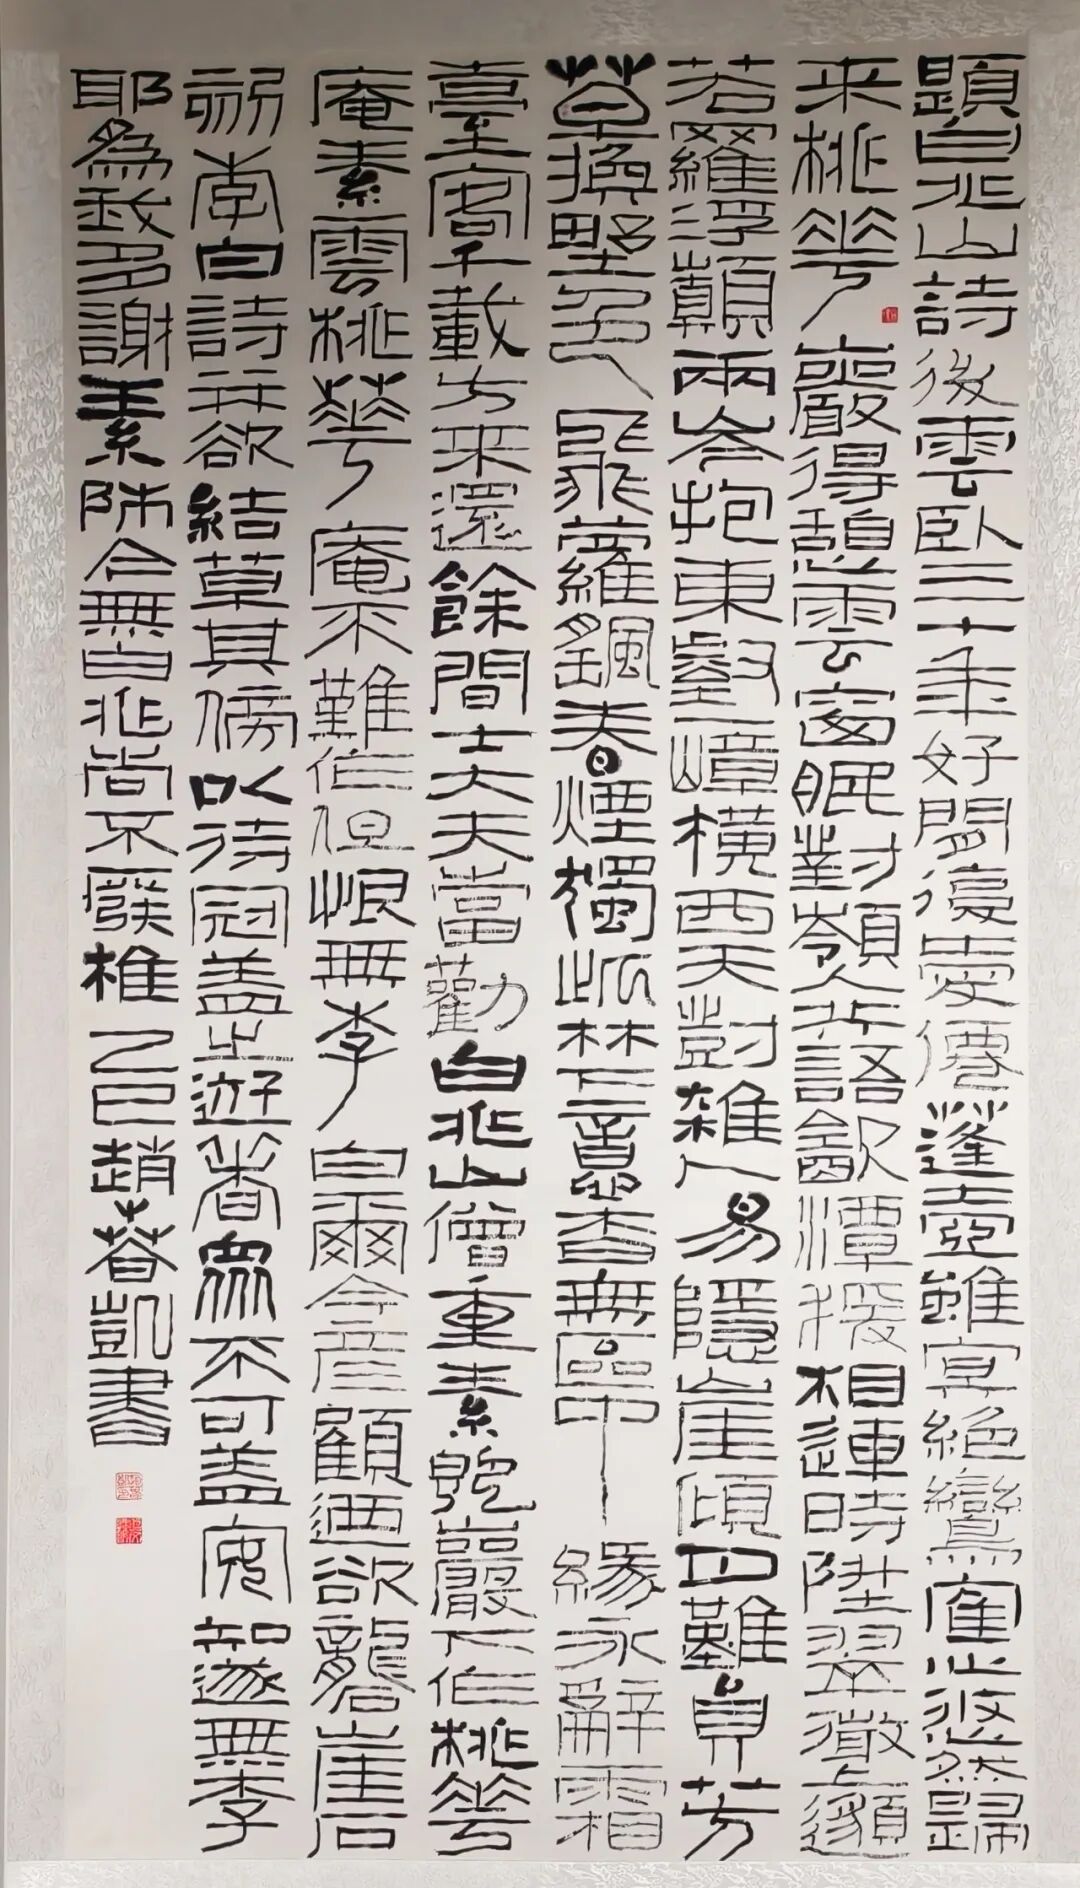 題白兆山詩後雲臥三十年好閒復愛僊蓬壺雖冥絕鸞寉心悠然歸
来桃花巖得憩雲窗眠對嶺人共語飲潭猨相連時陞翠微上邈
若羅浮巔兩岑抱東壑一嶂橫西天樹雜日易隱崖傾月難員芳
草換野色飛蘿颻春煙獨此林下意杳無區中緣永辭霜
臺客千載方来還餘間士大夫當勸白兆山僧重素於巖下作桃花
庵素雲桃花庵不難作但恨無李白爾今彥顧迺欲礱崖石
刱李白詩并欲結草其傍以待冠蓋之遊者衆不可蓋安知遂無李
耶為我多謝素師今無白兆尚不廢椎 乙巳趙春凱書